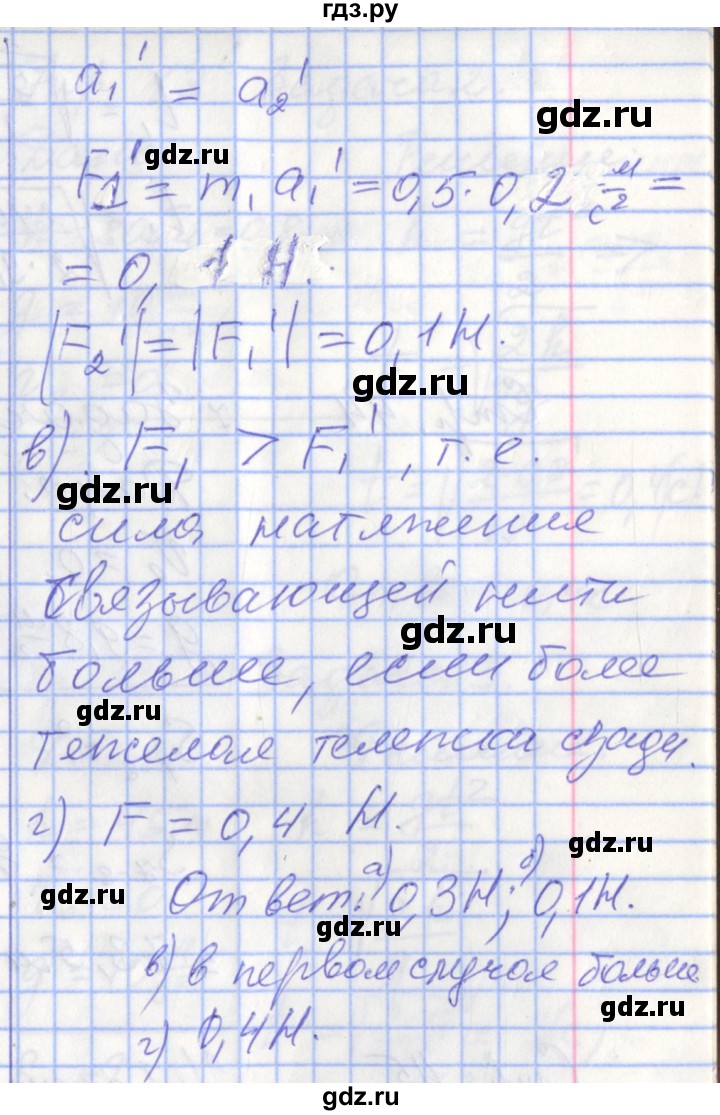 гдз.ру
a₁' = a₂'
gdz.ru
F₁' = m₁ a₁' = 0,5 · 0,2 м/с² =
= 0,1 Н.
|F₂'| = |F₁'| = 0,1 Н.
gdz.ru
в) F₁ > F₁', т. е.
gdz.ru
сила натяжения
связывающей нити
gdz.ru
больше, если более
gdz.ru
тяжелая тележка сзади.
г) F = 0,4 Н.
gdz.ru
gdz.ru
Ответ: а) 0,3 Н; б) 0,1 Н.
gdz.ru
в) в первом случае больше
gdz.ru
г) 0,4 Н.
gdz.ru